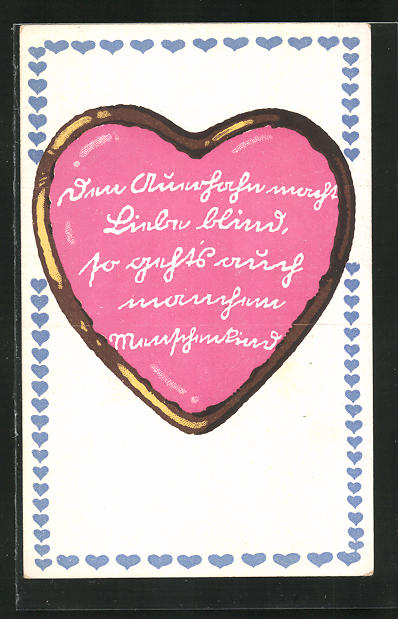 Den Auerhahn macht
Liebe blind,
so geht's auch
manchem
Menschenkind